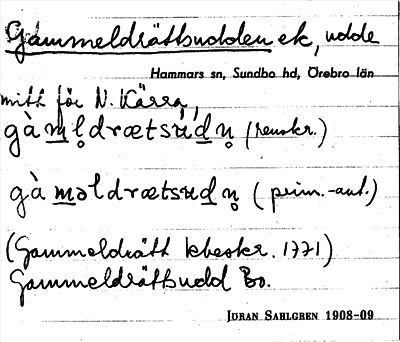 Gammeldrättsudden ek, udde
Hammars sn, Sundbo hd, Örebro län
mitt för N. Kärra,
gàml̥drætsud̲n̥ (renskr.)
gàməldrætsud̲n̥ (prim.-ant.)
(Gammeldrätt lbeskr. 1771)
Gammeldrättsudd Bo.
JÖRAN SAHLGREN 1908-09